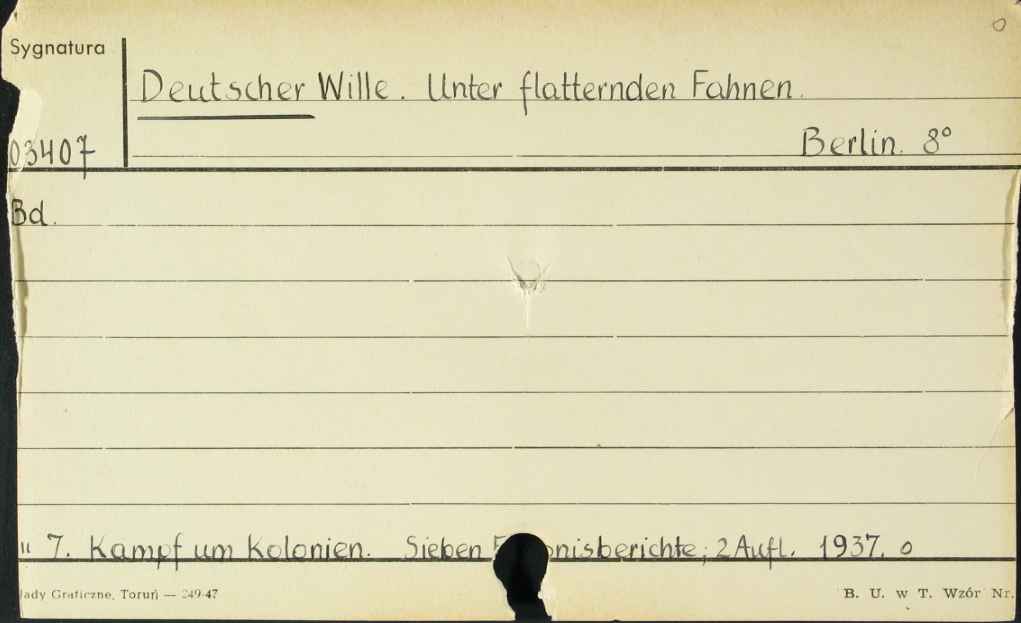 Sygnatura
o
Deutscher Wille. Unter flatternden Fahnen.
03407
Berlin. 8°
Bd.
" 7. Kampf um Kolonien. Sieben nisberichte; 2 Aufl. 1937. o
ady Graficzne, Toruń — 249-47
B. U. w T. Wzór Nr.